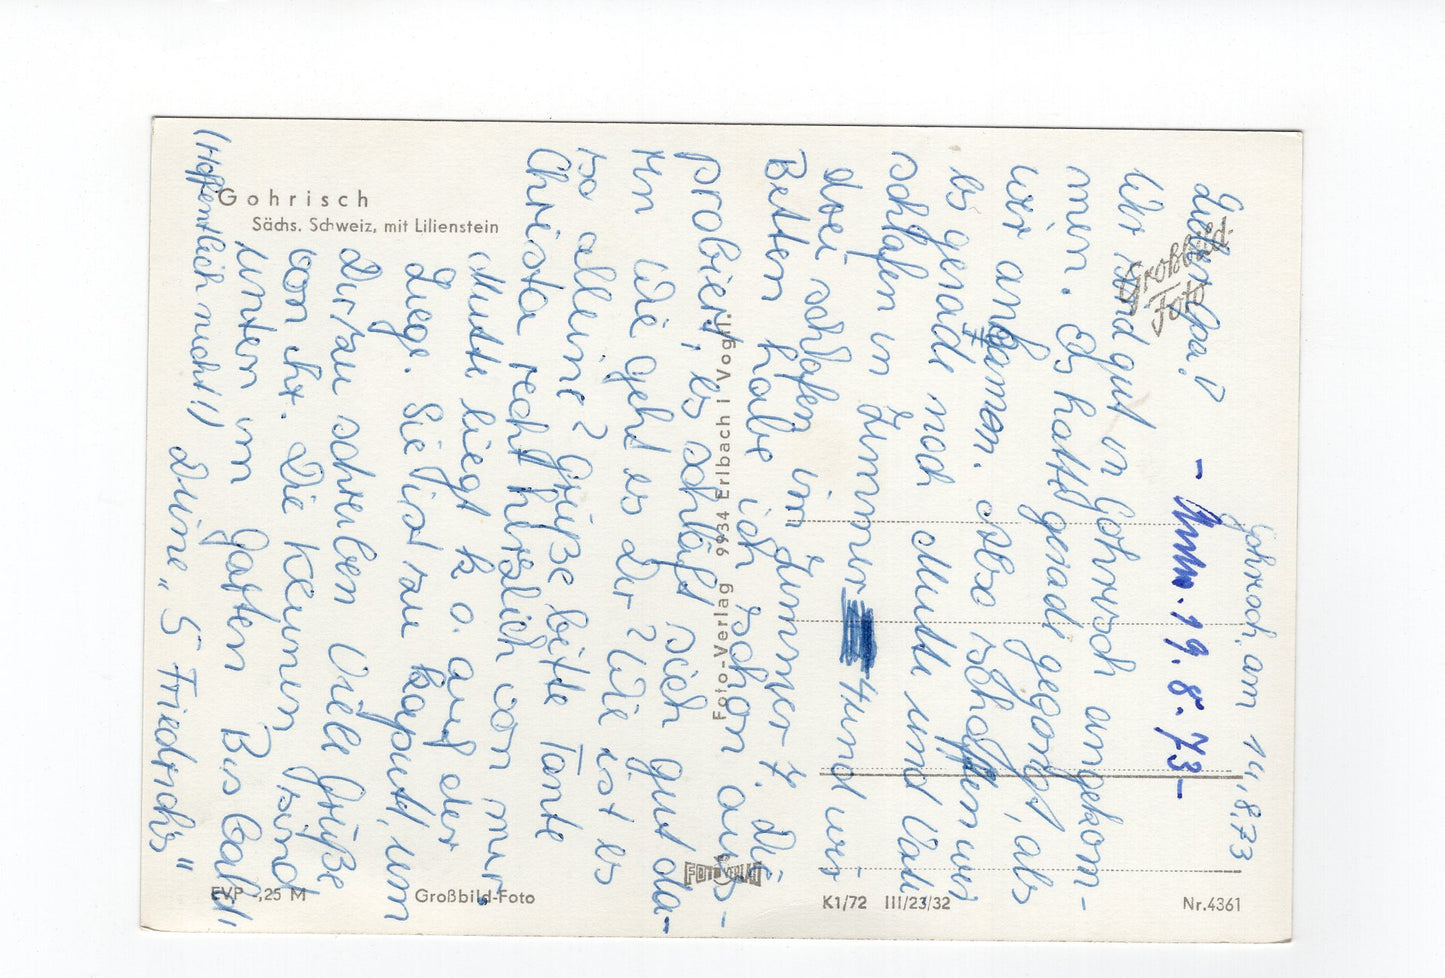 Gohrisch, am 14.8.73
19.8.73-
Lieber Opa!
Wir sind gut in Gohrisch angekom-
men. Es hatte gerade geregnet, als
wir ankamen. Also schaffen wir
es gerade noch Mutti und Vati
schlafen in Zimmer 4 und wir
drei schlafen im Zimmer 7. Die
Betten habe ich schon aus-
probiert, es schläft sich gut da-
rin Wie geht es Dir? Wie ist es
so alleine? Grüße bitte Tante
Christa recht herzlich von mir
Mutti liegt k.o. auf der
Liege. Sie ist zu kaputt, um
Dir zu schreiben Viele Grüße
von ihr. Die Kleinen sind
unten im Garten Bis bald!
(Hoffentlich nicht!) Deine „5 Friedrich's"
Gohrisch
Sächs. Schweiz, mit Lilienstein
Großbild-
Foto
Foto-Verlag 9934 Erlbach i Vogtl.
FOTO VERLAG
EVP -,25 M
Großbild-Foto
K1/72 III/23/32
Nr.4361